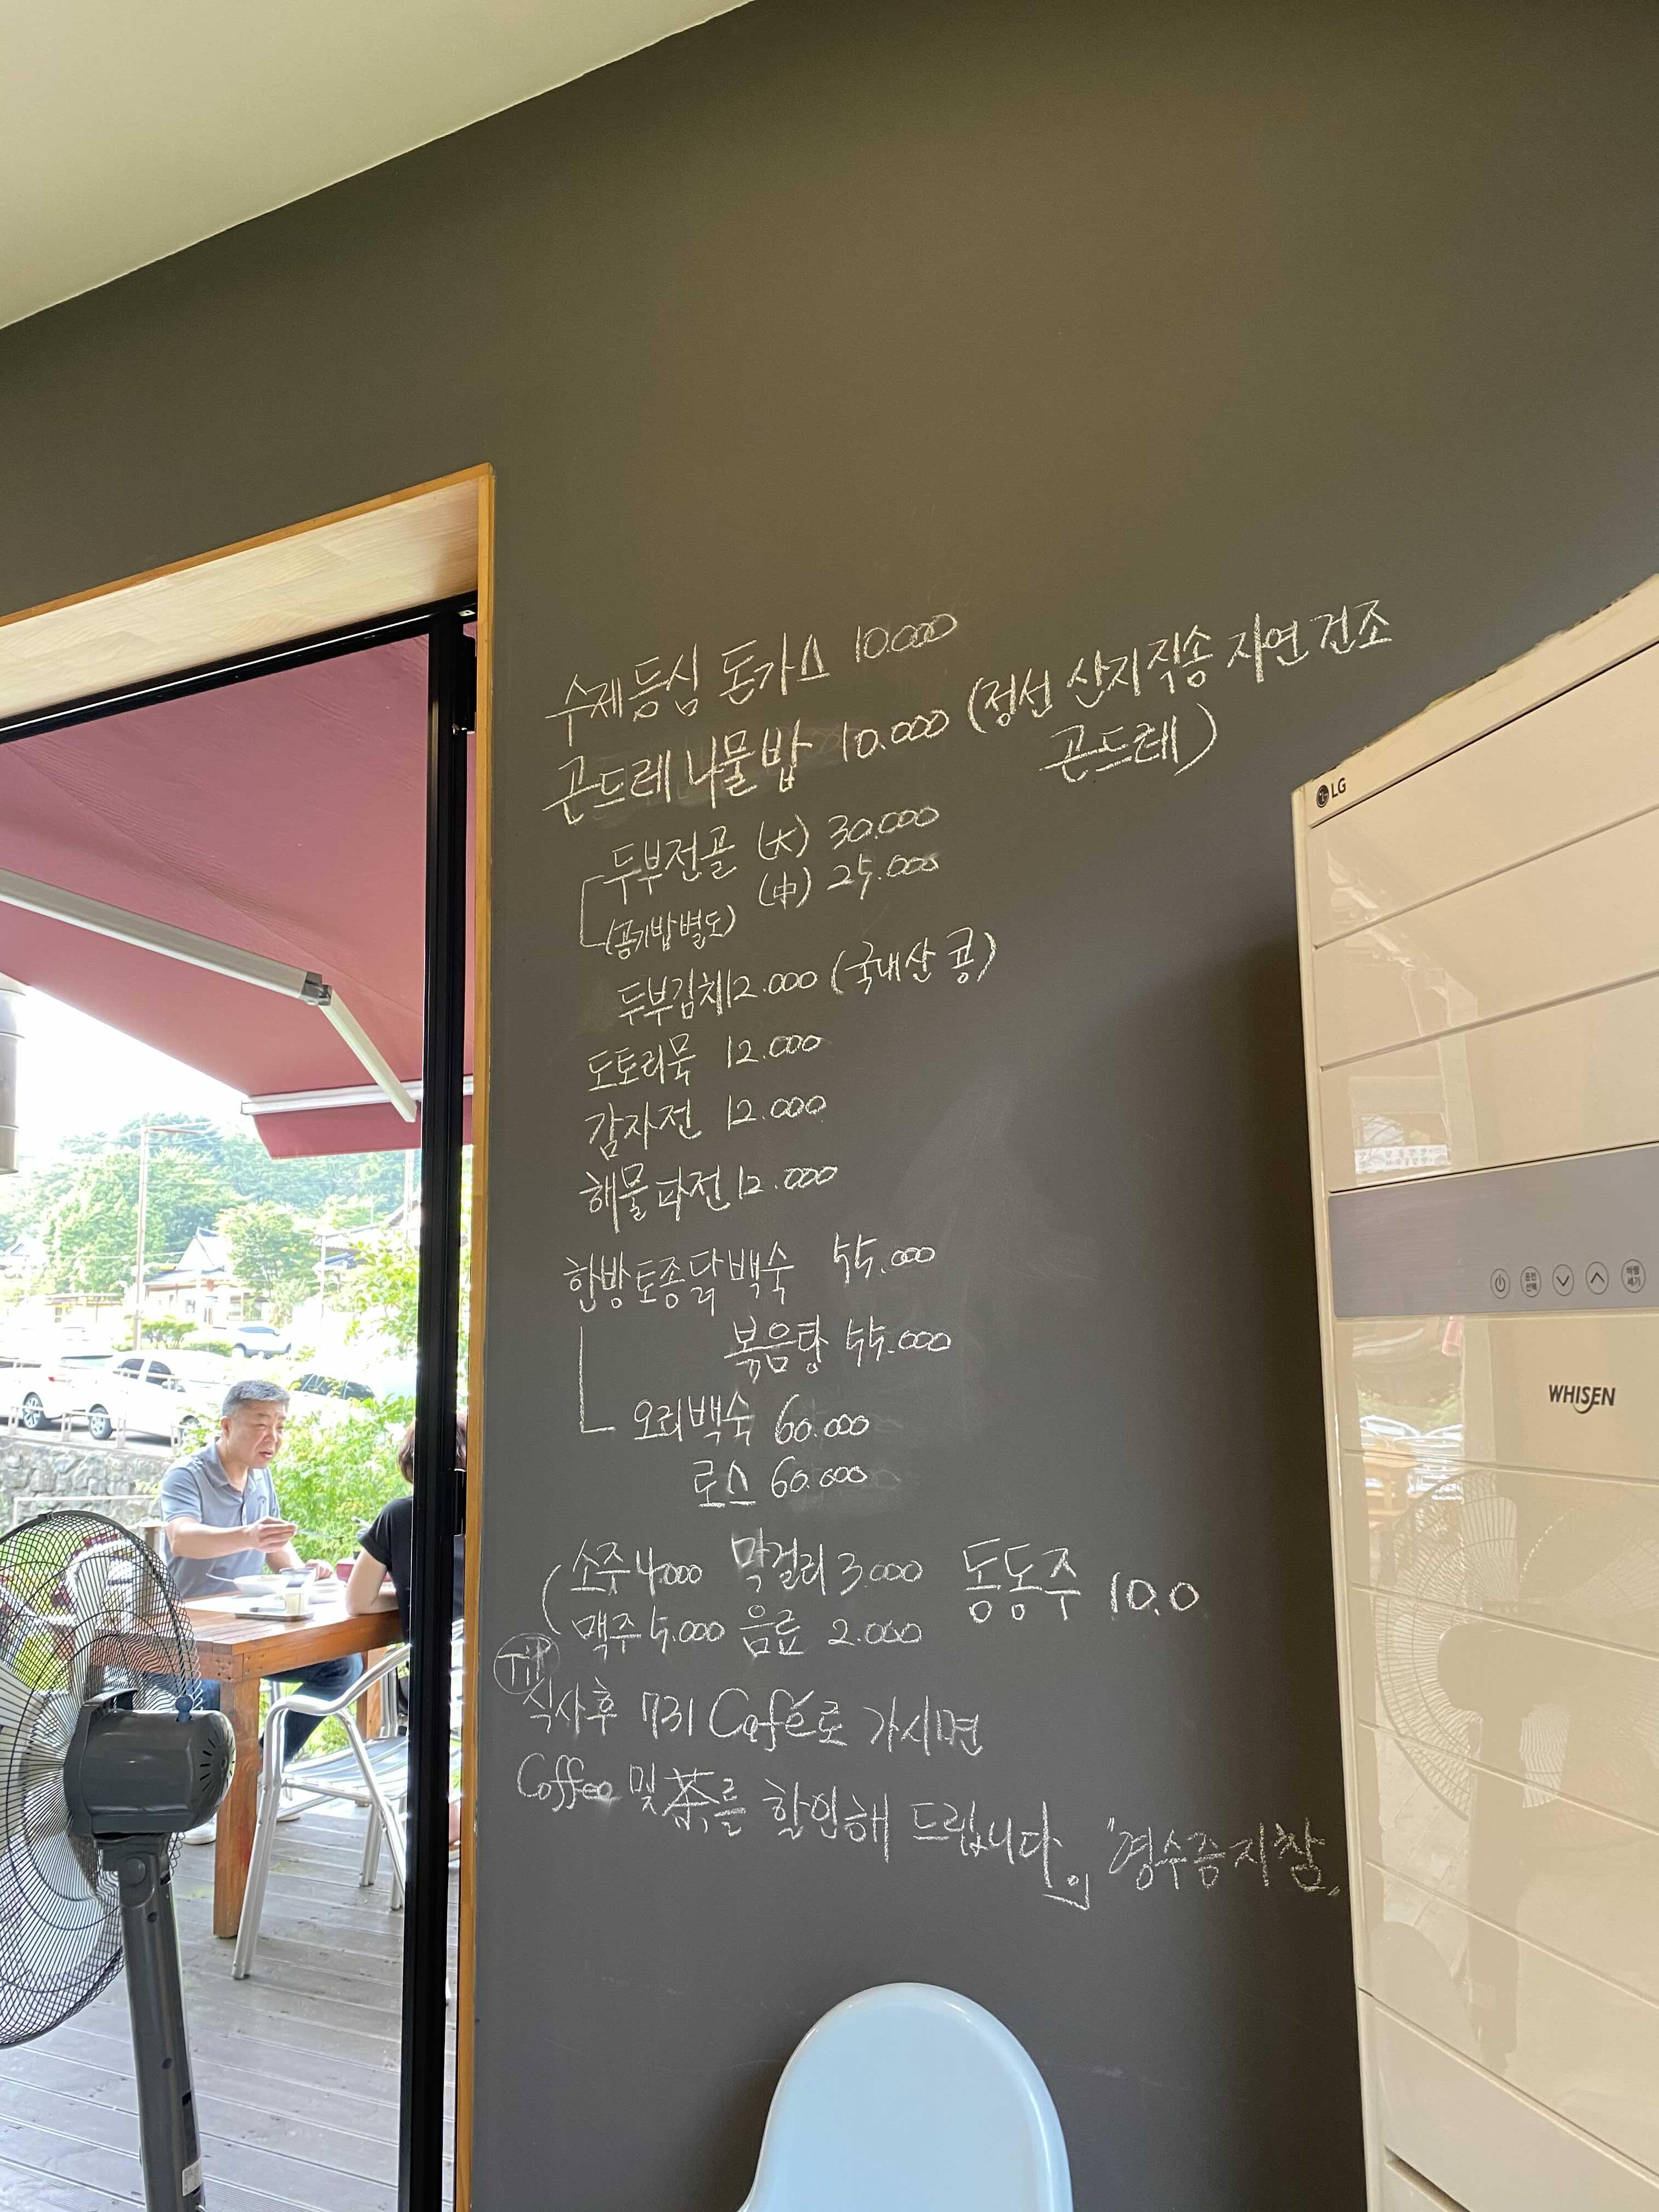 수제등심 돈가스 10.000
곤드레 나물밥 10.000 (정선 산지직송 자연건조
곤드레)
두부전골 (大) 30.000
(中) 25.000
(공기밥별도)
두부김치 12.000 (국내산 콩)
도토리묵 12.000
감자전 12.000
해물파전 12.000
한방토종닭백숙 55.000
볶음탕 55.000
오리백숙 60.000
로스 60.000
소주 4.000 막걸리 3.000 동동주 10.0
맥주 5.000 음료 2.000
Tip
식사후 731 Café로 가시면
Coffee 및 茶를 할인해 드립니다. "영수증지참"
LG
운전선택
바람세기
WHISEN